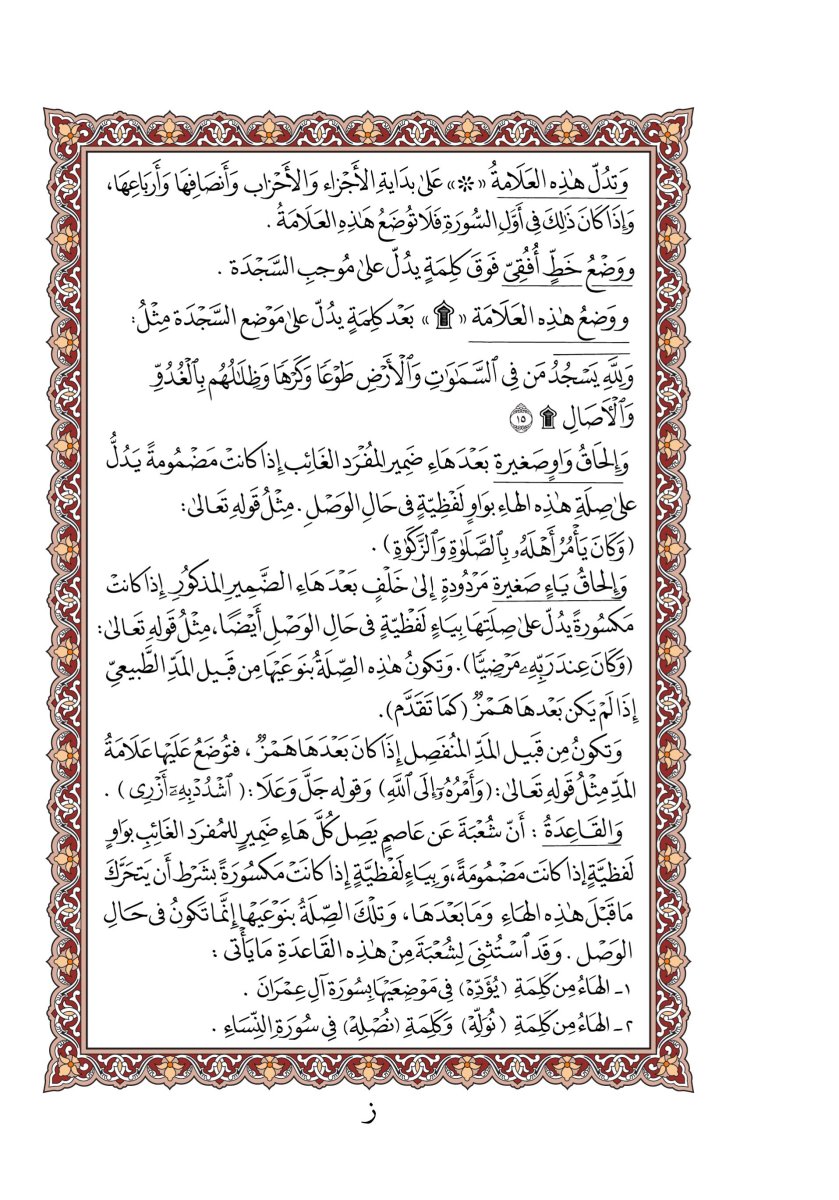 وَتَدُلّ هٰذِه العَلَامَةُ «۞» عَلىٰ بدَايَةِ الأَجْزاء وَالأَحْزاب وَأَنصَافِهَا وَأَربَاعِهَا،
وَإذَا كانَ ذَلِكَ فِى أَوَّلِ السُّورَةِ فَلَا تُوضَعُ هَٰذِهِ العَلَامَةُ .
ووَضْعُ خَطٍّ أُفُقِيّ فَوقَ كلِمَةٍ يدُلّ علىٰ مُوجِبِ السَّجْدَة .
ووَضعُ هٰذِه العَلَامَة «۩» بَعْد كلِمَةٍ يدُلّ علىٰ مَوْضِع السَّجْدَة مِثْلُ:
وَلِلَّهِ يَسْجُدُ مَن فِى ٱلسَّمَٰوَٰتِ وَٱلْأَرْضِ طَوْعًا وَكَرْهًا وَظِلَٰلُهُم بِٱلْغُدُوِّ
وَٱلْأٓصَالِ ۩ ١٥
وَإلحَاقُ وَاوٍ صَغيرة بَعْدَ هَاءِ ضَمِير المُفْرَد الغَائب إذا كانتْ مَضْمُومةً يَدُلُّ
علىٰ صِلَةِ هٰذِه الهاءِ بوَاوٍ لَفْظِيّةٍ فى حَال الوَصْلِ . مِثْلُ قَوله تَعَالىٰ:
(وَكَانَ يَأْمُرُ أَهْلَهُۥ بِٱلصَّلَوٰةِ وَٱلزَّكَوٰةِ) .
وَإلحَاقُ يَاءٍ صَغيرة مَرْدُودةٍ إلىٰ خَلْفٍ بَعْدَ هَاءِ الضَّمِيرِ المذكُورِ إذا كانتْ
مَكسُورَةً يدُلّ علىٰ صِلَتِهَا بِيَاءٍ لَفْظِيّةٍ فى حَال الوَصْلِ أَيْضًا، مِثْلُ قَوله تَعَالىٰ:
(وَكَانَ عِندَ رَبِّهِۦ مَرْضِيًّا). وَتكونُ هٰذِه الصِّلَةُ بنَوعَيْهَا مِن قَبيل المَدِّ الطَّبيعىّ
إذَا لَمْ يكن بَعْدهَا هَمْزٌ (كمَا تَقَدَّم).
وَتكونُ مِن قَبيل المَدِّ المُنفَصِل إذَا كانَ بَعْدَهَا هَمْزٌ ، فتُوضَعُ عَلَيْهَا عَلامَةُ
المَدِّ مِثْلُ قَوله تَعَالىٰ: (وَأَمْرُهُۥٓ إِلَى ٱللَّهِ) وَقوله جَلّ وَعَلَا : ( ٱشْدُدْ بِهِۦٓ أَزْرِى ) .
وَالقَاعِدَةُ : أَنّ شُعْبَةَ عَن عاصِمٍ يَصِل كُلَّ هَاءِ ضَمِيرٍ للمُفرَد الغَائب بوَاوٍ
لَفظِيّةٍ إذا كانَت مَضْمُومَةً، وَبيَاءٍ لَفْظِيّةٍ إذا كانَتْ مَكسُورَةً بشَرْط أَن يَتَحَرَّكَ
مَا قَبْلَ هٰذِه الهَاءِ وَمَا بَعْدَهَا ، وَتلْكَ الصِّلَةُ بنَوعَيْهَا إنّمَا تَكُونُ فى حَالِ
الوَصْل . وَقَد ٱستُثنِىَ لِشُعْبَةَ مِنْ هٰذِه القَاعدَةِ مَا يَأْتى :
١ـ الهَاءُ مِن كلِمَةِ (يُؤَدِّهْ) فِي مَوْضِعَيْهَا بِسُورَة آلِ عِمْرَانَ .
٢ـ الهَاءُ مِن كلِمَةِ (نُوَلِّهْ) وَكَلِمَةِ (نُصْلِهْ) فِي سُورَةِ النِّسَاءِ .
ز